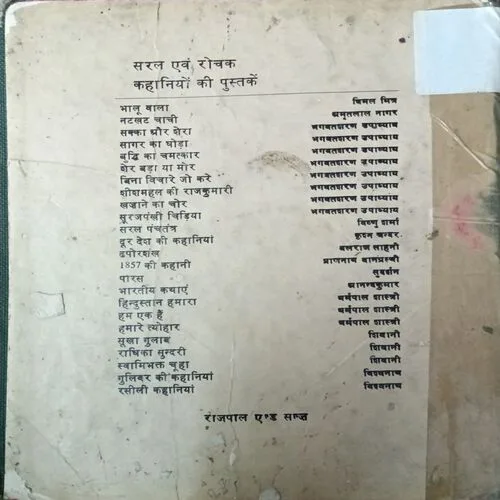 सरल एवं रोचक
कहानियों की पुस्तकें
भालू वाला बिमल मित्र
नटखट चाची अमृतलाल नागर
सक्का और शेरा भगवतशरण उपाध्याय
सागर का घोड़ा भगवतशरण उपाध्याय
बुद्धि का चमत्कार भगवतशरण उपाध्याय
शेर बड़ा या मोर भगवतशरण उपाध्याय
बिना विचारे जो करे भगवतशरण उपाध्याय
शीशमहल की राजकुमारी भगवतशरण उपाध्याय
खज़ाने का चोर भगवतशरण उपाध्याय
सूरजपंखी चिड़िया भगवतशरण उपाध्याय
सरल पंचतंत्र विष्णु शर्मा
दूर देश की कहानियां कृश्न चन्दर
ढपोरशंख बलराज साहनी
1857 की कहानी प्राणनाथ वानप्रस्थी
पारस सुदर्शन
भारतीय कथाएं आनन्दकुमार
हिन्दुस्तान हमारा धर्मपाल शास्त्री
हम एक हैं धर्मपाल शास्त्री
हमारे त्योहार धर्मपाल शास्त्री
सूखा गुलाब शिवानी
राधिका सुन्दरी शिवानी
स्वामिभक्त चूहा शिवानी
गुलिवर की कहानियां विश्वनाथ
रसीली कहानियां विश्वनाथ
राजपाल एण्ड सन्ज़